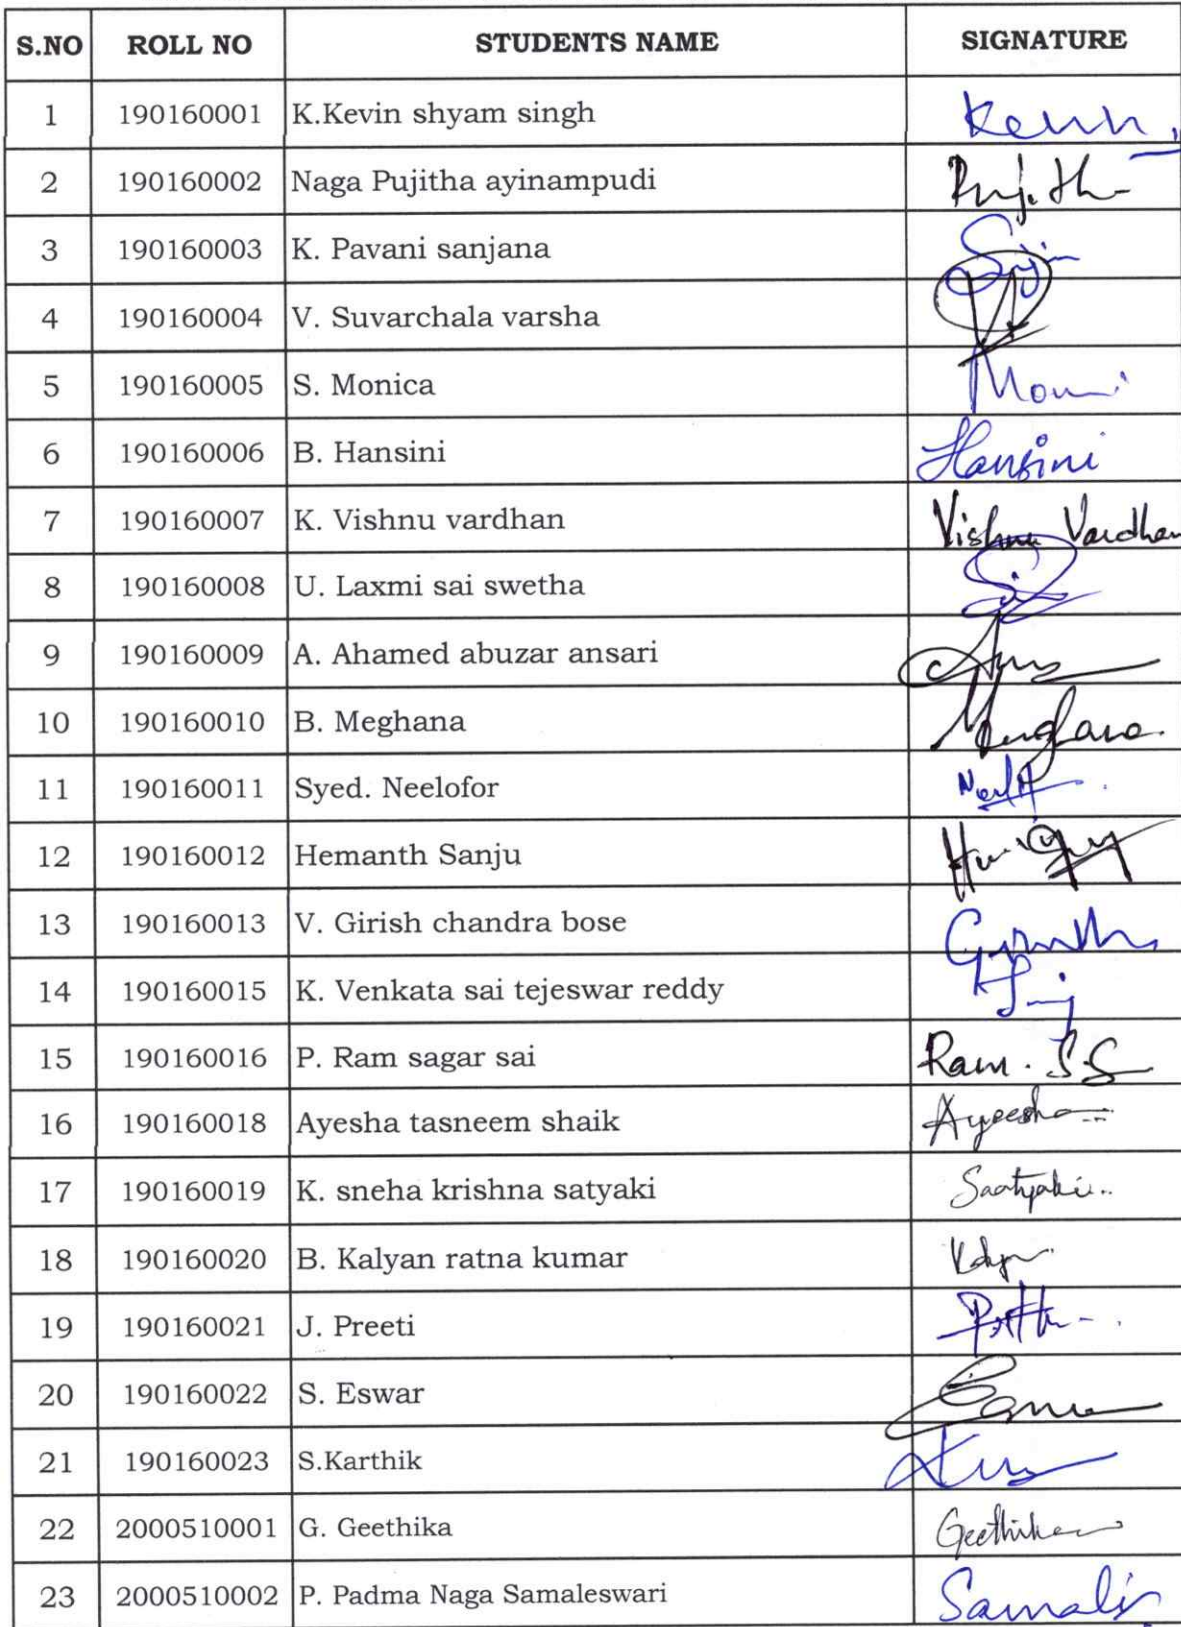 S.NO ROLL NO STUDENTS NAME SIGNATURE
1 190160001 K.Kevin shyam singh Kevin
2 190160002 Naga Pujitha ayinampudi
3 190160003 K. Pavani sanjana
4 190160004 V. Suvarchala varsha
5 190160005 S. Monica
6 190160006 B. Hansini Hansini
7 190160007 K. Vishnu vardhan Vishnu Vardhan
8 190160008 U. Laxmi sai swetha
9 190160009 A. Ahamed abuzar ansari
10 190160010 B. Meghana Meghana
11 190160011 Syed. Neelofor
12 190160012 Hemanth Sanju
13 190160013 V. Girish chandra bose
14 190160015 K. Venkata sai tejeswar reddy
15 190160016 P. Ram sagar sai Ram. S.S
16 190160018 Ayesha tasneem shaik Ayeesha
17 190160019 K. sneha krishna satyaki Saatyaki
18 190160020 B. Kalyan ratna kumar
19 190160021 J. Preeti
20 190160022 S. Eswar
21 190160023 S.Karthik
22 2000510001 G. Geethika Geethika
23 2000510002 P. Padma Naga Samaleswari